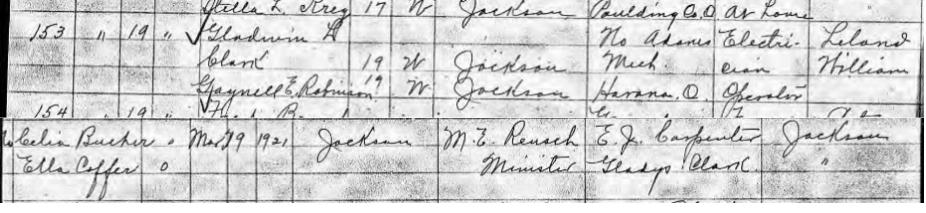 Stella L. Kreg 17 W Jackson Paulding Co. O At Home
153 " 19 " Gladwin L No Adams Electri- Leland
Clark 19 W Jackson Mich cian William
Gaynell E. Robinson 19 W Jackson Havana, O. Operator
154 19
Celia Bucher o Mar 19 1921 Jackson M. E. Reusch E. J. Carpenter Jackson
Ella Coffer o Minister Gladys Clark "